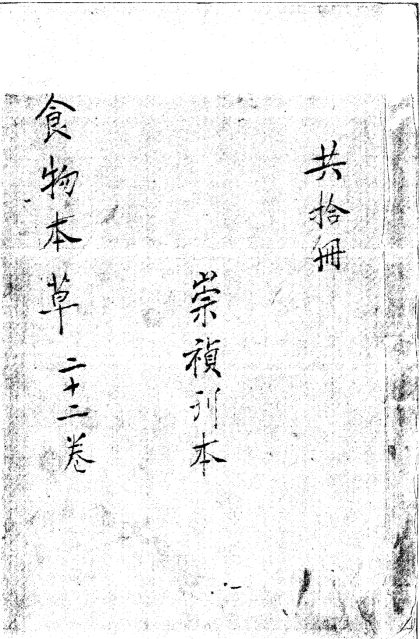 共拾冊
崇禎刊本
食物本草 二十二卷